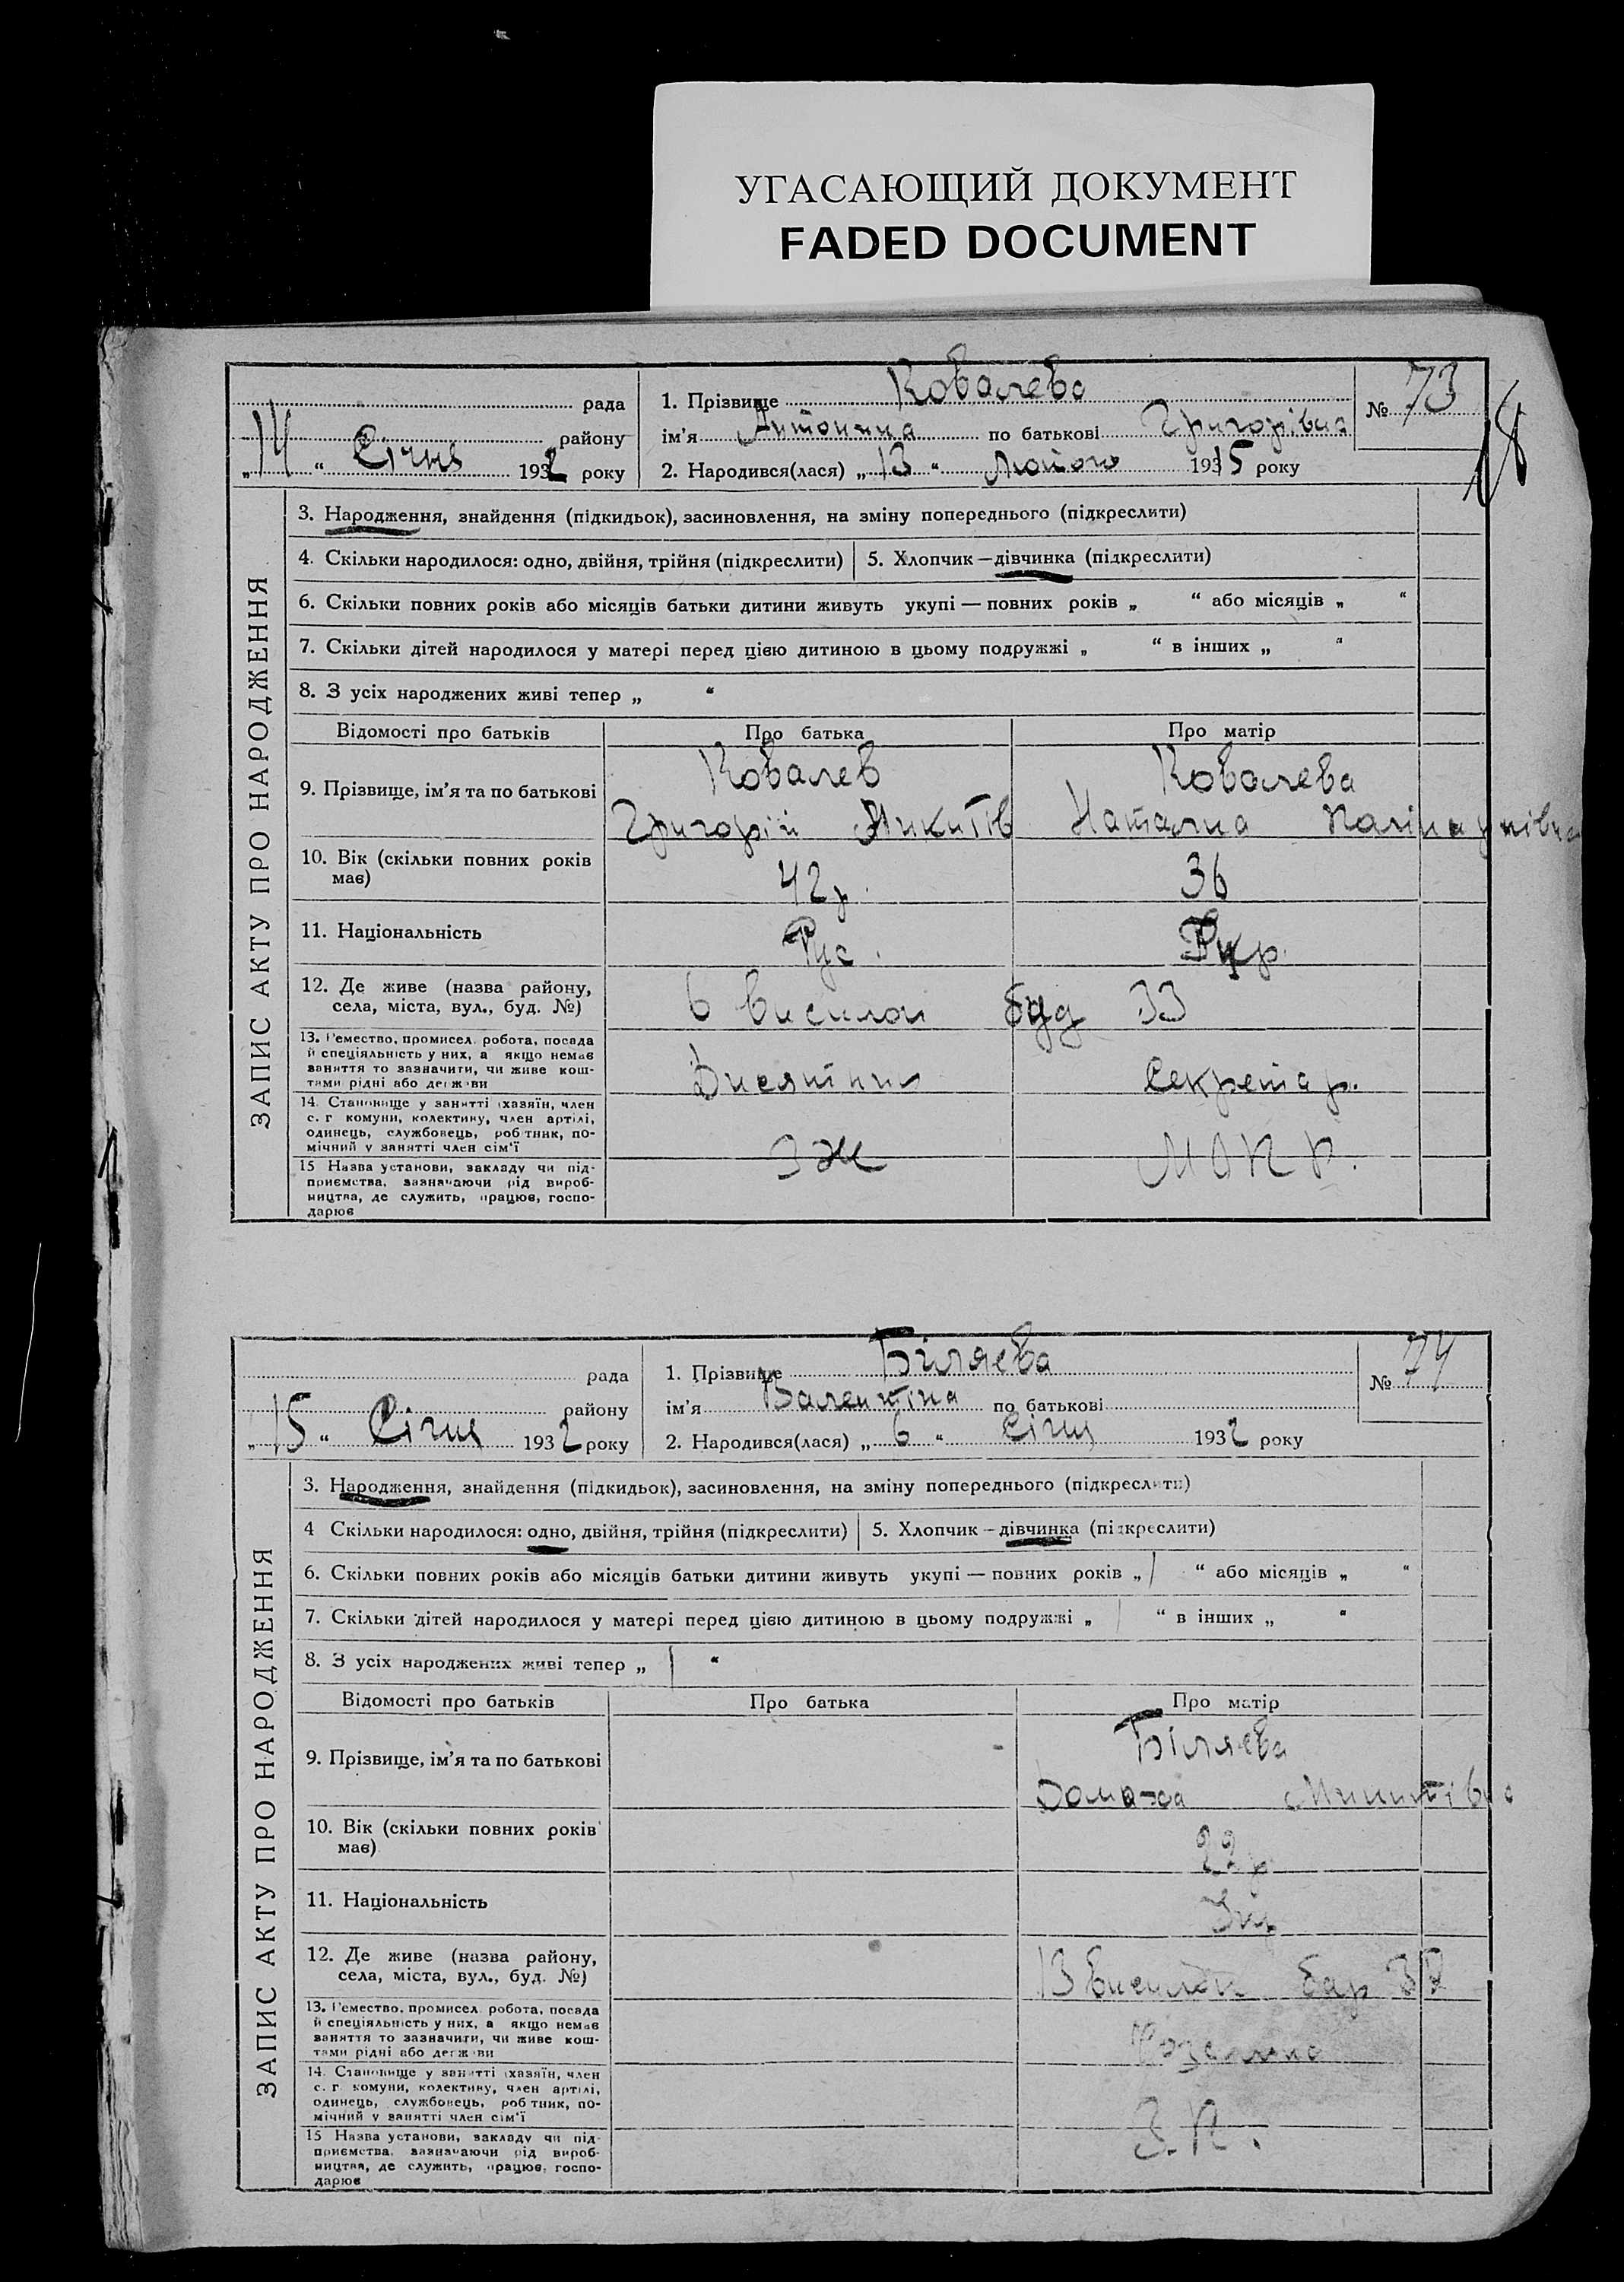 УГАСАЮЩИЙ ДОКУМЕНТ
FADED DOCUMENT
18
ЗАПИС АКТУ ПРО НАРОДЖЕННЯ
рада
району
„14“ Січня 1932 року
1. Прізвище Ковалева
ім'я Антонина по батькові Григорівна
2. Народився(лася) „13“ Лютого 1915 року
№ 73
3. Народження, знайдення (підкидьок), засиновлення, на зміну попереднього (підкреслити)
4. Скільки народилося: одно, двійня, трійня (підкреслити)
5. Хлопчик — дівчинка (підкреслити)
6. Скільки повних років або місяців батьки дитини живуть укупі — повних років „ “ або місяців „ “
7. Скільки дітей народилося у матері перед цією дитиною в цьому подружжі „ “ в інших „ “
8. З усіх народжених живі тепер „ “
Відомості про батьків Про батька Про матір
9. Прізвище, ім'я та по батькові
Ковалев
Григорій Микитів
Ковалева
Наталия
10. Вік (скільки повних років
має)
42 р. 36
11. Національність
Рус. Укр.
12. Де живе (назва району,
села, міста, вул., буд. №)
6 висилок буд 33
13. Ремество, промисел, робота, посада
й спеціяльність у них, а якщо немає
заняття то зазначити, чи живе кош-
тами рідні або держави
Секретар.
14. Становище у занятті (хазяїн, член
с. г комуни, колективу, член артілі,
одинець, службовець, робітник, по-
мічний у занятті член сім'ї
15 Назва установи, закладу чи під-
приємства, зазначаючи рід вироб-
ництва, де служить, працює, госпо-
дарює
ЗЖ МОПР.
ЗАПИС АКТУ ПРО НАРОДЖЕННЯ
рада
району
„15“ Січня 1932 року
1. Прізвище Біляева
ім'я Валентіна по батькові
2. Народився(лася) „6“ Січня 1932 року
№ 74
3. Народження, знайдення (підкидьок), засиновлення, на зміну попереднього (підкреслити)
4 Скільки народилося: одно, двійня, трійня (підкреслити)
5. Хлопчик — дівчинка (підкреслити)
6. Скільки повних років або місяців батьки дитини живуть укупі — повних років „ “ або місяців „ “
7. Скільки дітей народилося у матері перед цією дитиною в цьому подружжі „ “ в інших „ “
8. З усіх народжених живі тепер „ “
Відомості про батьків Про батька Про матір
9. Прізвище, ім'я та по батькові
Біляева
10. Вік (скільки повних років
має)
22 р
11. Національність
12. Де живе (назва району,
села, міста, вул., буд. №)
13 висилок бар
13. Ремество, промисел, робота, посада
й спеціяльність у них, а якщо немає
заняття то зазначити, чи живе кош-
тами рідні або держави
14. Становище у занятті (хазяїн, член
с. г комуни, колективу, член артілі,
одинець, службовець, робітник, по-
мічний у занятті член сім'ї
15 Назва установи, закладу чи під-
приємства, зазначаючи рід вироб-
ництва, де служить, працює, госпо-
дарює
З.П.